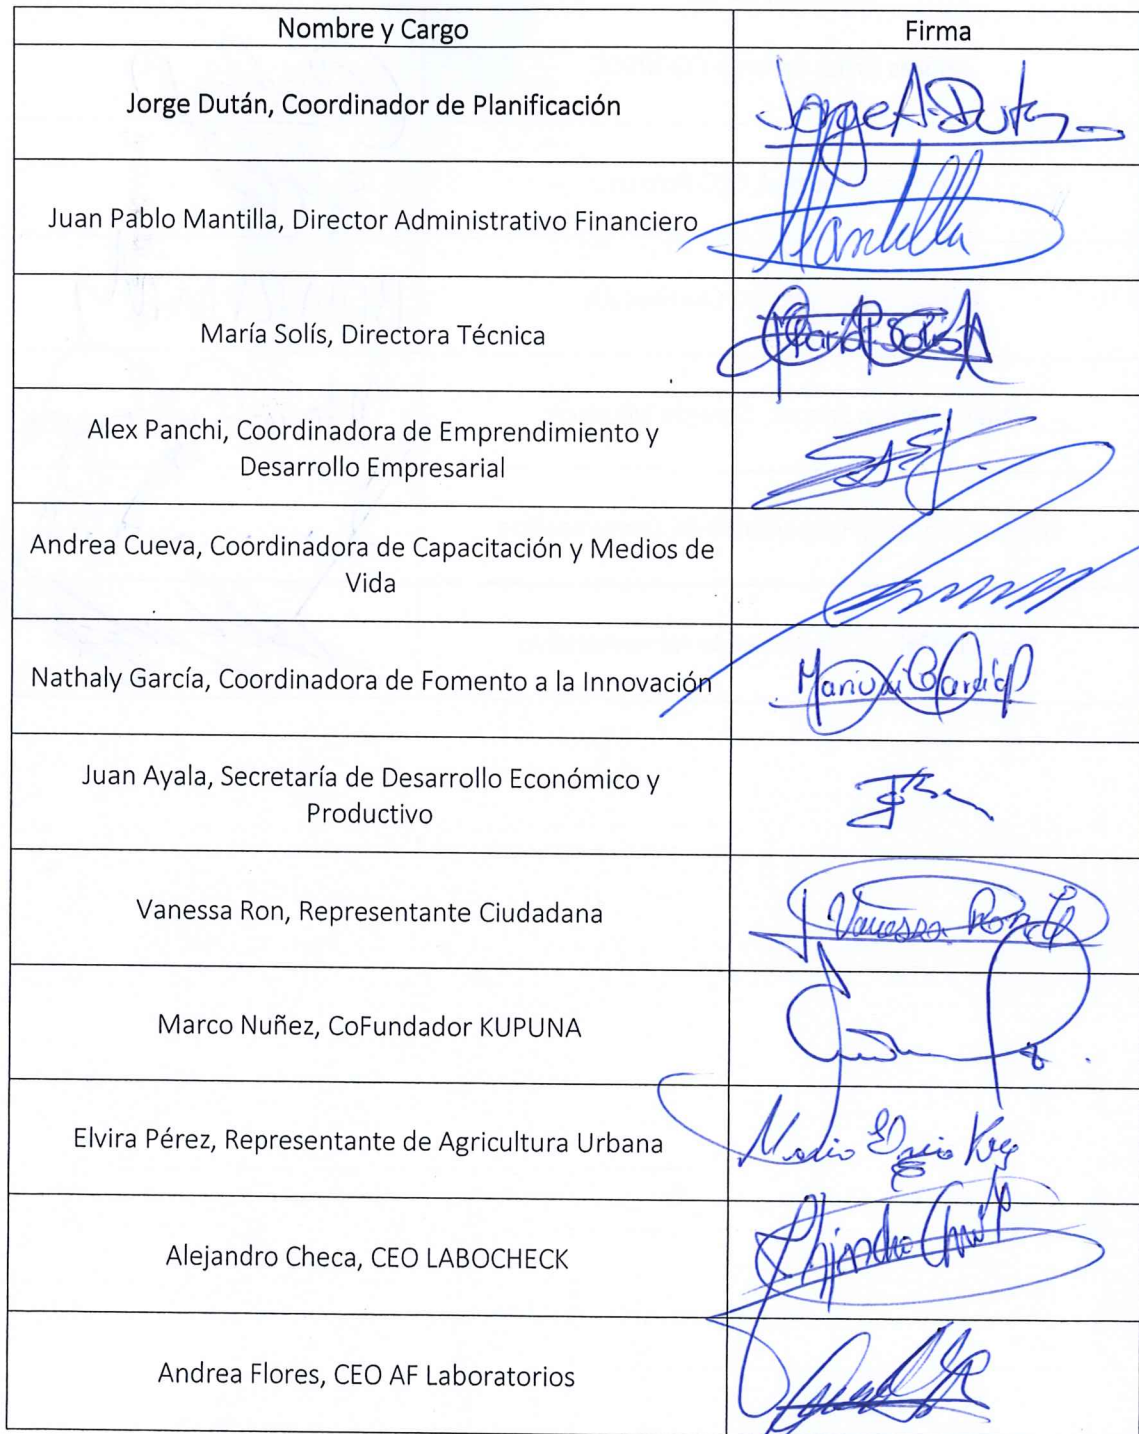 Nombre y Cargo
Firma
Jorge Dután, Coordinador de Planificación
Jorge A. Dután
Juan Pablo Mantilla, Director Administrativo Financiero
Mantilla
María Solís, Directora Técnica
Alex Panchi, Coordinadora de Emprendimiento y
Desarrollo Empresarial
Andrea Cueva, Coordinadora de Capacitación y Medios de
Vida
Nathaly García, Coordinadora de Fomento a la Innovación
Juan Ayala, Secretaría de Desarrollo Económico y
Productivo
Vanessa Ron, Representante Ciudadana
Vanessa Ron
Marco Nuñez, CoFundador KUPUNA
Elvira Pérez, Representante de Agricultura Urbana
Alejandro Checa, CEO LABOCHECK
Andrea Flores, CEO AF Laboratorios